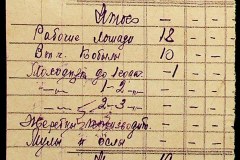 Рабочие лошади 12 — —
В т.ч. кобылы 10 — —
Молодняк до 1 года —1 — —
— " — 1-2 — — — —
— " — 2-3 — — — —
Жеребцы производит. — — —
Мулы и ослы — — —